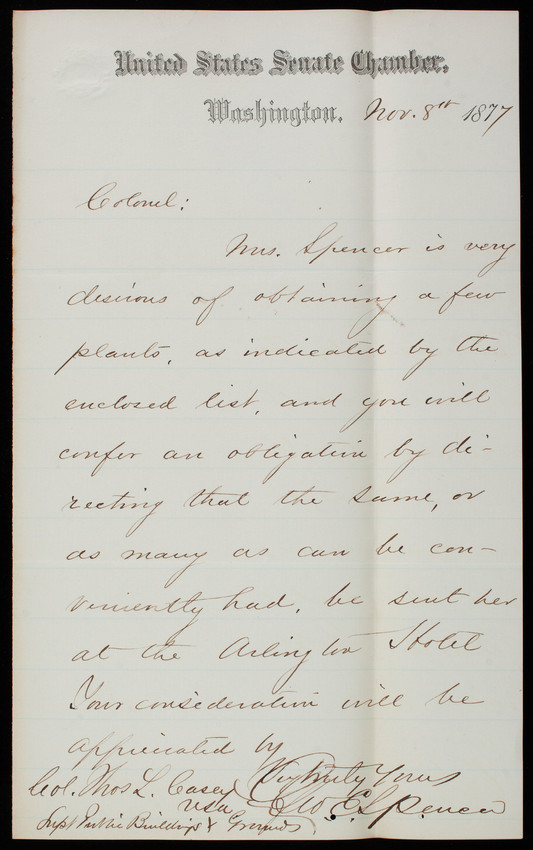 United States Senate Chamber,
Washington, Nov. 8th 1877
Colonel:
Mrs. Spencer is very
desirous of obtaining a few
plants, as indicated by the
enclosed list, and you will
confer an obligation by di-
recting that the same, or
as many as can be con-
veniently had, be sent her
at the Arlington Hotel
Your consideration will be
appreciated by
Very truly Yours
Geo. E. Spencer
Col. Thos L. Casey
USA
Supt Public Buildings & Grounds